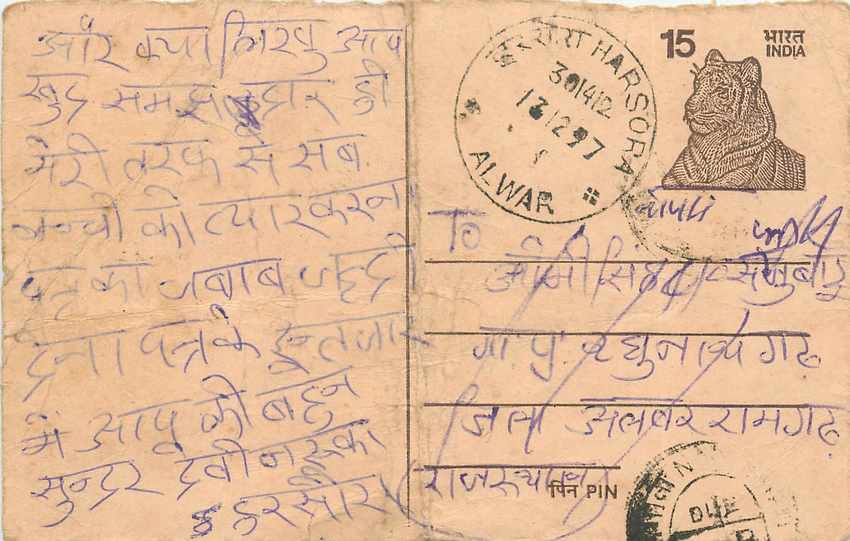 और क्या लिखु आप
खुद समझदार हो
मेरी तरफ से सब
बच्चो को प्यार करना
पत्र का जबाब जल्दी
देना पत्र के इन्तजार
में आप की बहन
सुन्दर देवी नरूका
हरसोरा
हरसौरा HARSORA
301412
13 12 97
ALWAR
15
भारत
INDIA
To
गा. पु. रघुनाथगढ़
जिला अलवर रामगढ़
राजस्थान
पिन PIN
DUE